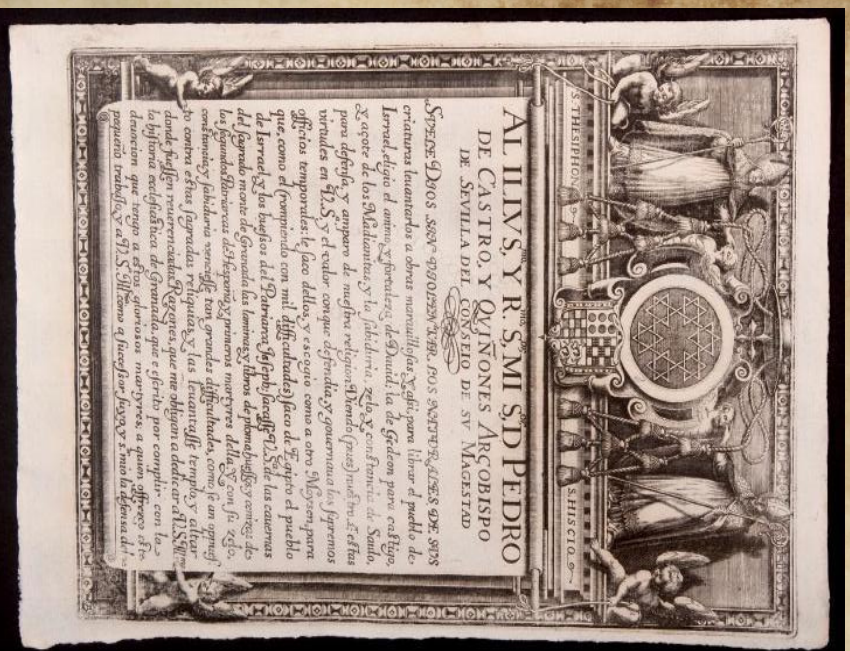 S. THESIPHON S. HISCIO
AL ILLVS, Y R. S, MI S, D PEDRO
DE CASTRO, Y QVIÑONES ARÇOBISPO
DE SEVILLA DEL CONSEIO DE SV MAGESTAD
SVELE DIOS SIN VIOLENTAR LOS NATVRALES DE SVS
criaturas leuantarlos a obras marauillosas y assi, para librar el pueblo de
Israel, eligio el animo, y fortaleza de Dauid, la de Gedeon para castigo,
y açote de los Madianitas, y la sabiduria, zelo, y constancia de Saulo,
para defensa, y amparo de nuestra religion. Viendo (pues) estas
virtudes en V.S. y el valor conque defendia, y gouernaua los supremos
officios temporales: le saco dellos, y escogio como a otro Moysen, para
que, como el (rompiendo con mil difficultades) saco de Egypto el pueblo
de Israel, y los huessos del Patriarca Ioseph: sacasse V.S. de las cauernas
del sagrado monte de Granada las laminas, y libros de plomo, huessos, y cenizas de
los segundos Patriarcas de Hespaña, y primeros martyres della, y con su zelo,
constancia, y sabiduria venciesse tan grandes difficultades, como se an
contra estas sagradas reliquias, y las leuantasse templo, y altar
donde fuessen reuerenciadas. Razones, que me obligan a dedicar a V.S.
la historia ecclesiastica de Granada, que e escrito por complir con la
deuocion que tengo a estos gloriosos martyres; a quien offrezco este
pequeño trabajo, y a V.S. como a successor suyo, y s. mio la defensa del